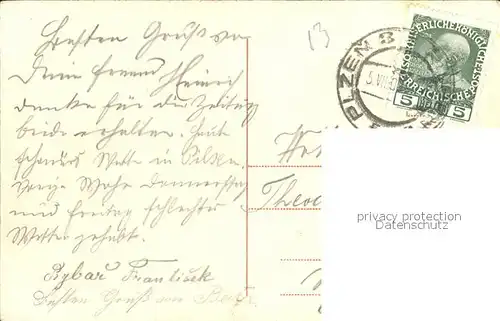 Besten Gruß von
Dein Freund Heinrich
danke für die Zeitung
beide erhalten. Heute
schönes Wetter in Pilsen.
vorige Woche Donnerstag
und Freitag schlechtes
Wetter gehabt.
Rybar František
Besten Gruß von
13
PLZEŇ 3
5. VII
KAISERLICHE KÖNIGLICHE
ÖSTERREICHISCHE POST
5 5
Theo
privacy protection
Datenschutz